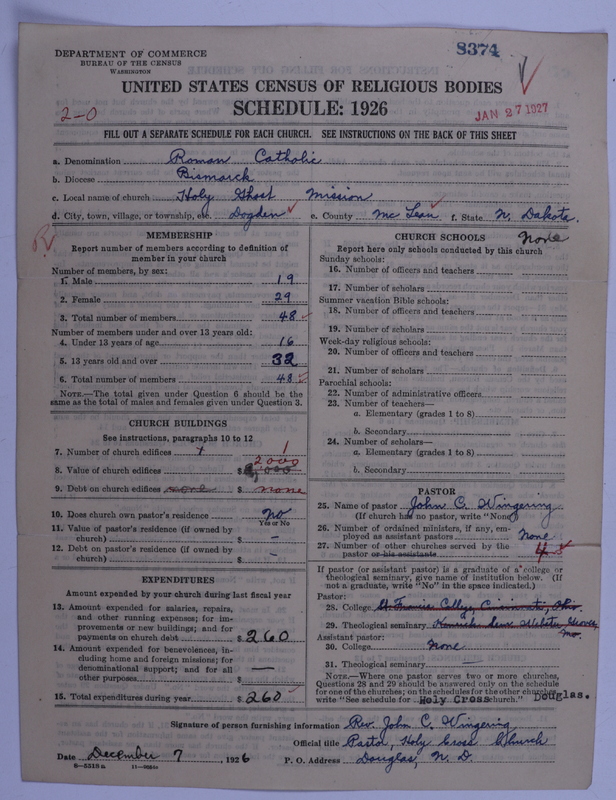 DEPARTMENT OF COMMERCE
BUREAU OF THE CENSUS
WASHINGTON
8374
UNITED STATES CENSUS OF RELIGIOUS BODIES
SCHEDULE: 1926
2-0
JAN 27 1927
FILL OUT A SEPARATE SCHEDULE FOR EACH CHURCH. SEE INSTRUCTIONS ON THE BACK OF THIS SHEET
a. Denomination Roman Catholic
b. Diocese Bismarck
c. Local name of church Holy Ghost Mission
d. City, town, village, or township, etc. Dogden e. County Mc Lean f. State N. Dakota.
MEMBERSHIP
Report number of members according to definition of
member in your church
Number of members, by sex:
1. Male 19
2. Female 29
3. Total number of members 48
Number of members under and over 13 years old:
4. Under 13 years of age 16
5. 13 years old and over 32
6. Total number of members 48
NOTE.—The total given under Question 6 should be
same as the total of males and females given under Question 3.
CHURCH BUILDINGS
See instructions, paragraphs 10 to 12
7. Number of church edifices 1 1
2000
8. Value of church edifices $
9. Debt on church edifices none $ none
10. Does church own pastor's residence No
Yes or No
11. Value of pastor's residence (if owned by
church) $ —
12. Debt on pastor's residence (if owned by
church) $ —
EXPENDITURES
Amount expended by your church during last fiscal year
13. Amount expended for salaries, repairs,
and other running expenses; for im-
provements or new buildings; and for
payments on church debt $ 260
14. Amount expended for benevolences, in-
cluding home and foreign missions; for
denominational support; and for all
other purposes $ —
15. Total expenditures during year $ 260
CHURCH SCHOOLS None
Report here only schools conducted by this church
Sunday schools:
16. Number of officers and teachers
17. Number of scholars
Summer vacation Bible schools:
18. Number of officers and teachers
19. Number of scholars
Week-day religious schools:
20. Number of officers and teachers
21. Number of scholars
Parochial schools:
22. Number of administrative officers
23. Number of teachers—
a. Elementary (grades 1 to 8)
b. Secondary
24. Number of scholars—
a. Elementary (grades 1 to 8)
b. Secondary
PASTOR
25. Name of pastor John C. Wingering
(If church has no pastor, write "None")
26. Number of ordained ministers, if any, em-
ployed as assistant pastors None
27. Number of other churches served by the
pastor or his assistant 4
If pastor (or assistant pastor) is a graduate of a college or
theological seminary, give name of institution below. (If
not a graduate, write "No" in the space indicated.)
Pastor:
28. College St. Francis College, Cincinnati, Ohio
29. Theological seminary Kenrick Sem. Webster Groves, Mo
Assistant pastor:
30. College None
31. Theological seminary —
NOTE.—Where one pastor serves two or more churches,
Questions 28 and 29 should be answered only on the schedule
for one of the churches; on the schedules for the other churches
write "See schedule for Holy Cross church." Douglas.
Signature of person furnishing information Rev. John C. Wingering
Official title Pastor, Holy Cross Church
Date December 7, 1926 P. O. Address Douglas, N. D.